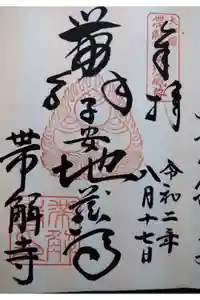 奉拝
令和二年
八月十七日
帯解
子安地蔵尊
帯解寺